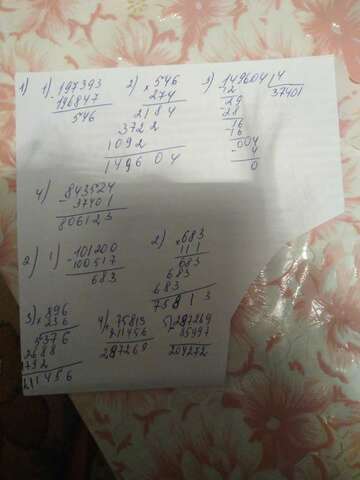 1) 1) 197393
- 196847
546
2) × 546
274
2184
3722
1092
149604
3) 149604 | 4
12
37401
29
28
16
16
004
4
0
4) 843524
- 37401
806123
2) 1) 101200
- 100517
683
2) × 683
111
683
683
683
75813
3) × 896
236
5376
2688
1792
211456
4) 75813
+ 211456
287269
5) 287269
204272